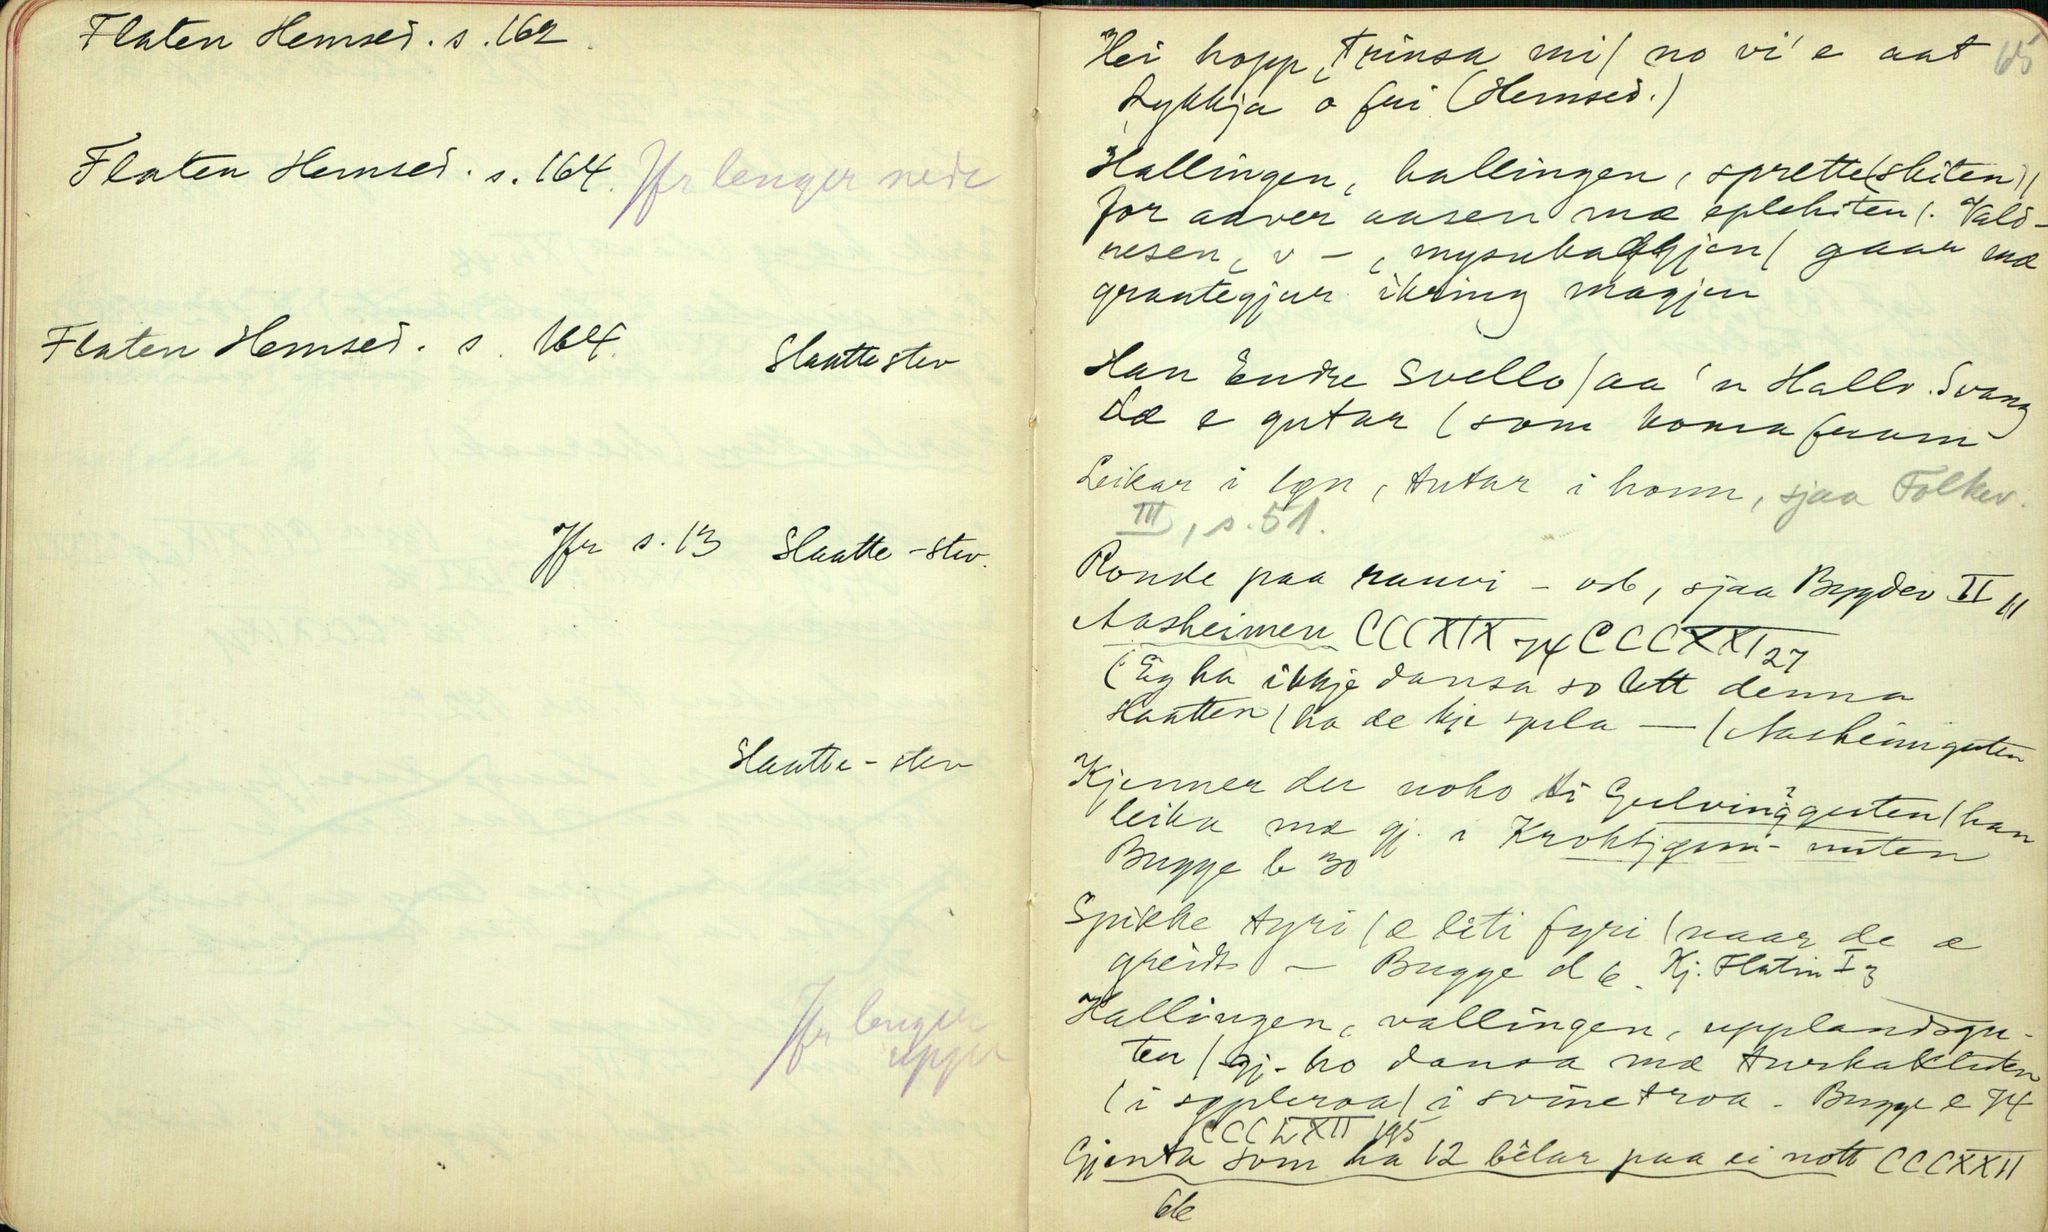 Flaten Hemsed. s. 162
Flaten Hemsed. s. 164. Jfr lenger nede
Flaten Hemsed. s. 164. Slaatte stev
Jfr s. 13 Slaatte-stev.
Slaatte-stev
Jfr lenger
uppe
65
Hei hopp, Trinsa mi / no vi' e aat
Lykkja o fri (Hemsed.)
Hallingen, hallingen, sprette(skiten) /
for aaver aasen mæ eplekiten /. Vald-
resen, v –, mysu / gaar mæ
grautegjur ikring magjen
Han Endre Svello / aa 'n Hallv. Svang
dæ e gutar / som koma fram
Leikar i lgn, tutar i honn, sjaa Folkev.
III, s. 51.
Ronde paa raunvi – osb, sjaa Bygdev II 111
Aasheimen CCCXIX 74 CCCXXI 27
(Eg ha ikkje dansa so lett denna
slaatten / ha de kje spela — / Aasheimguten
Kjenner du noko ti Gulvingguten / han
leika mæ gj. i nuten
Bugge b 30
Spikke tyri / e liti fyri / naar de e
greidt – Bugge d 6. Kj. Flatin I 3
Hallingen, vallingen, upplandsgu-
ten / gj. ho dansa mæ
/ i / i svinetroa – Bugge e 74
CCCLXII 195
Gjenta som ha 12 bêlar paa ei nott CCCXXII
66